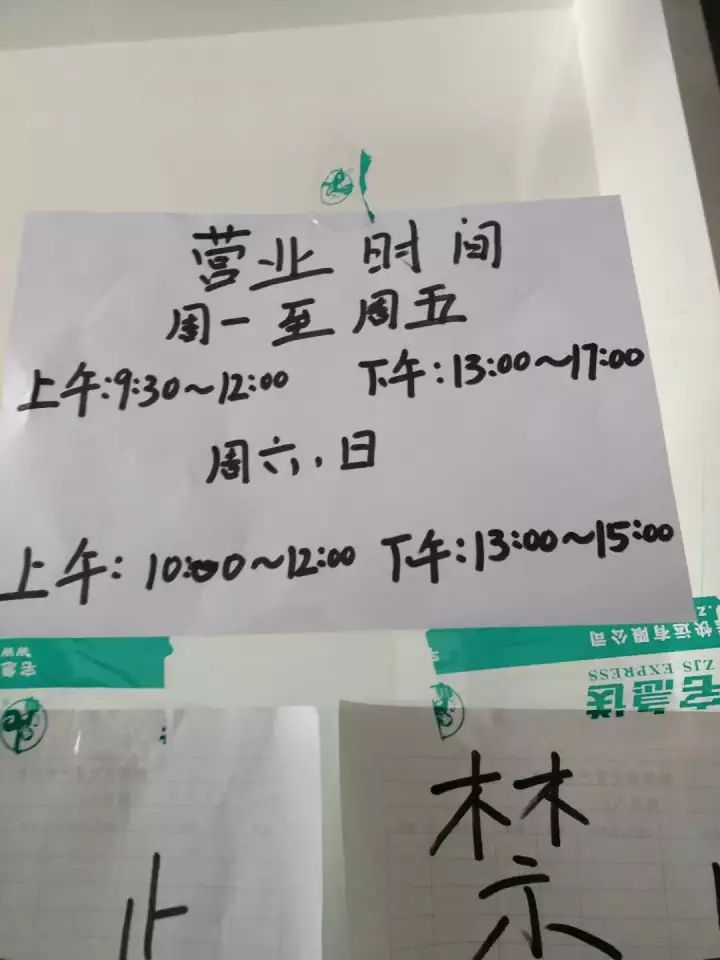 营业时间
周一至周五
上午:9:30~12:00 下午:13:00~17:00
周六、日
上午:10:00~12:00 下午:13:00~15:00
快运有限公司
宅急
ZJS EXPRESS
宅急送
禁
止